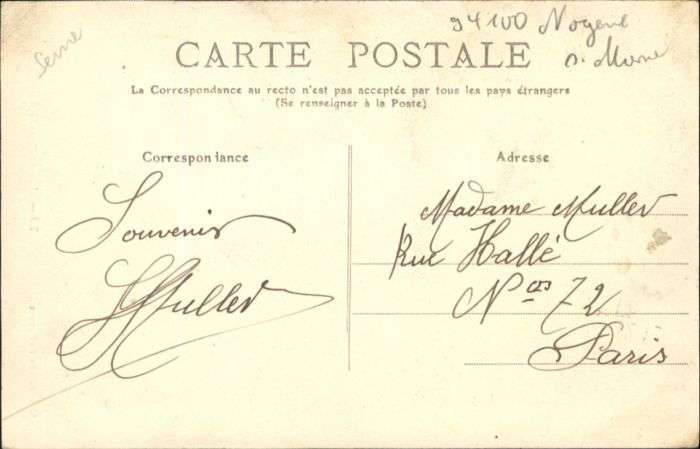 Seine
94100 Nogent
s. Marne
CARTE POSTALE
La Correspondance au recto n'est pas acceptée par tous les pays étrangers
(Se renseigner à la Poste)
Correspondance
Souvenir
Muller
Adresse
Madame Muller
Rue Hallé
Nos 72
Paris